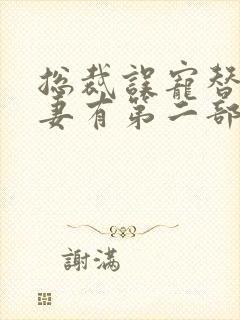 总裁誤寵替
妻有第二部
謝滿